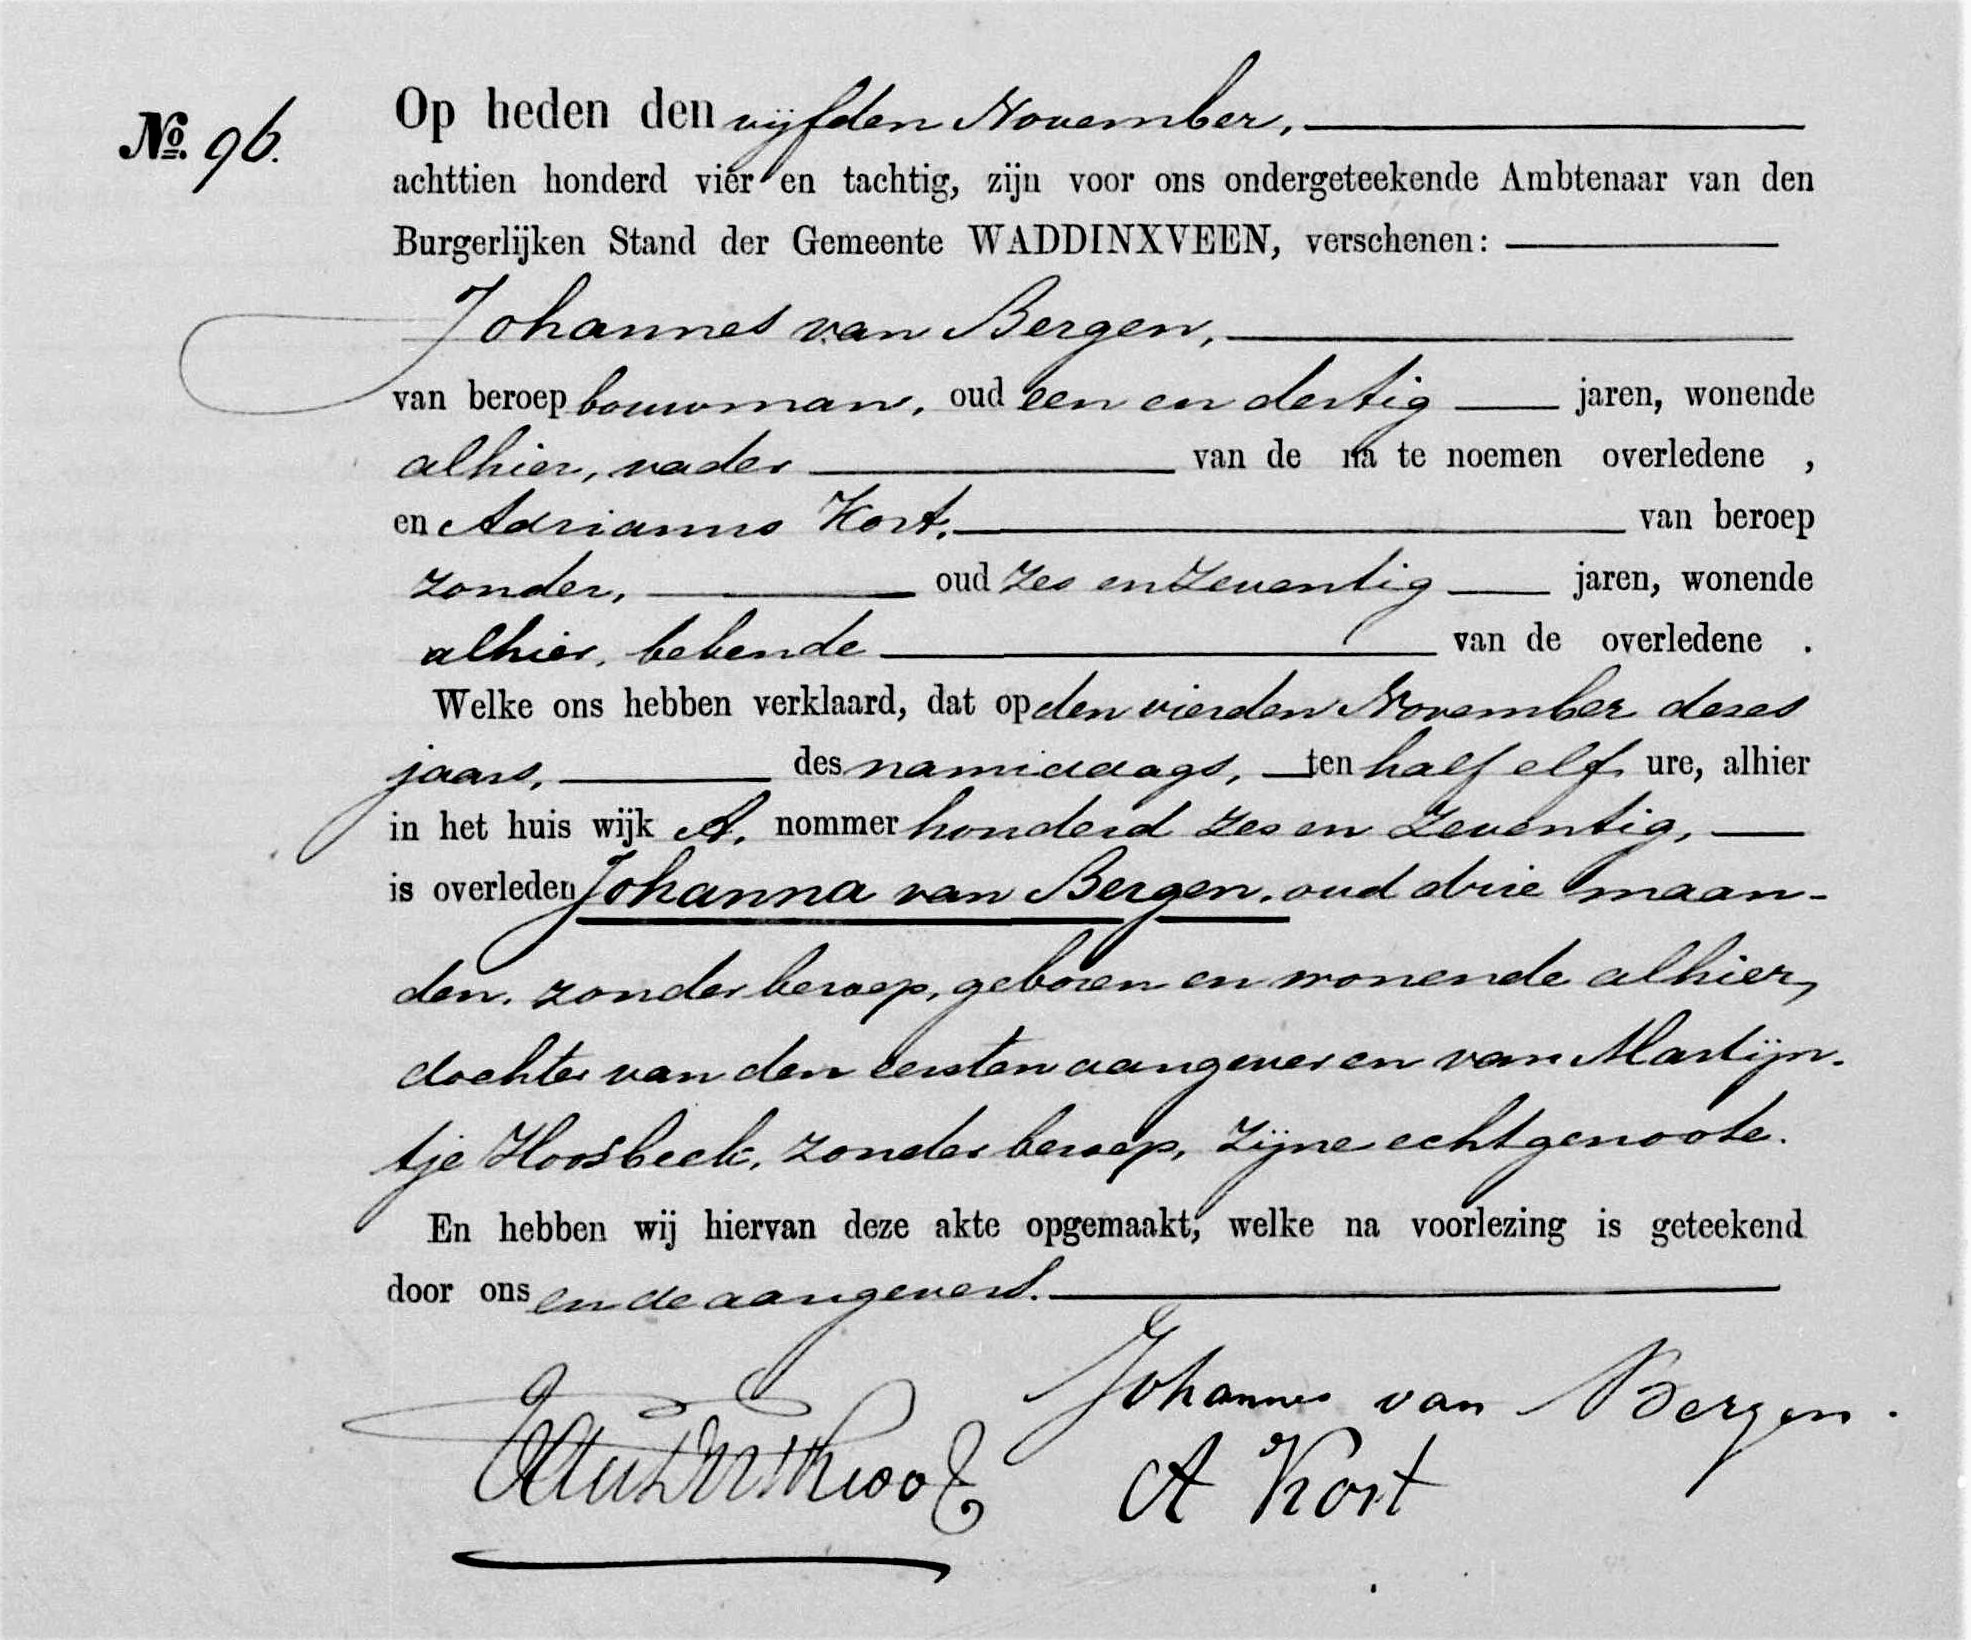 Op heden den vijfden November,
No. 96.
achttien honderd vier en tachtig, zijn voor ons ondergeteekende Ambtenaar van den
Burgerlijken Stand der Gemeente WADDINXVEEN, verschenen:
Johannes van Bergen,
van beroep bouwman, oud een en dertig jaren, wonende
alhier, vader van de na te noemen overledene ,
en Adrianus Kort, van beroep
zonder, oud zes en zeventig jaren, wonende
alhier, bekende van de overledene .
Welke ons hebben verklaard, dat op den vierden November dezes
jaars, des namiddags, ten half elf ure, alhier
in het huis wijk A, nommer honderd zes en zeventig,
is overleden Johanna van Bergen, oud drie maan-
den, zonder beroep, geboren en wonende alhier,
dochter van den eersten aangever en van Martijn-
tje Hoosbeek, zonder beroep, zijne echtgenoote.
En hebben wij hiervan deze akte opgemaakt, welke na voorlezing is geteekend
door ons en de aangevers.
Johannes van Bergen.
A Kort